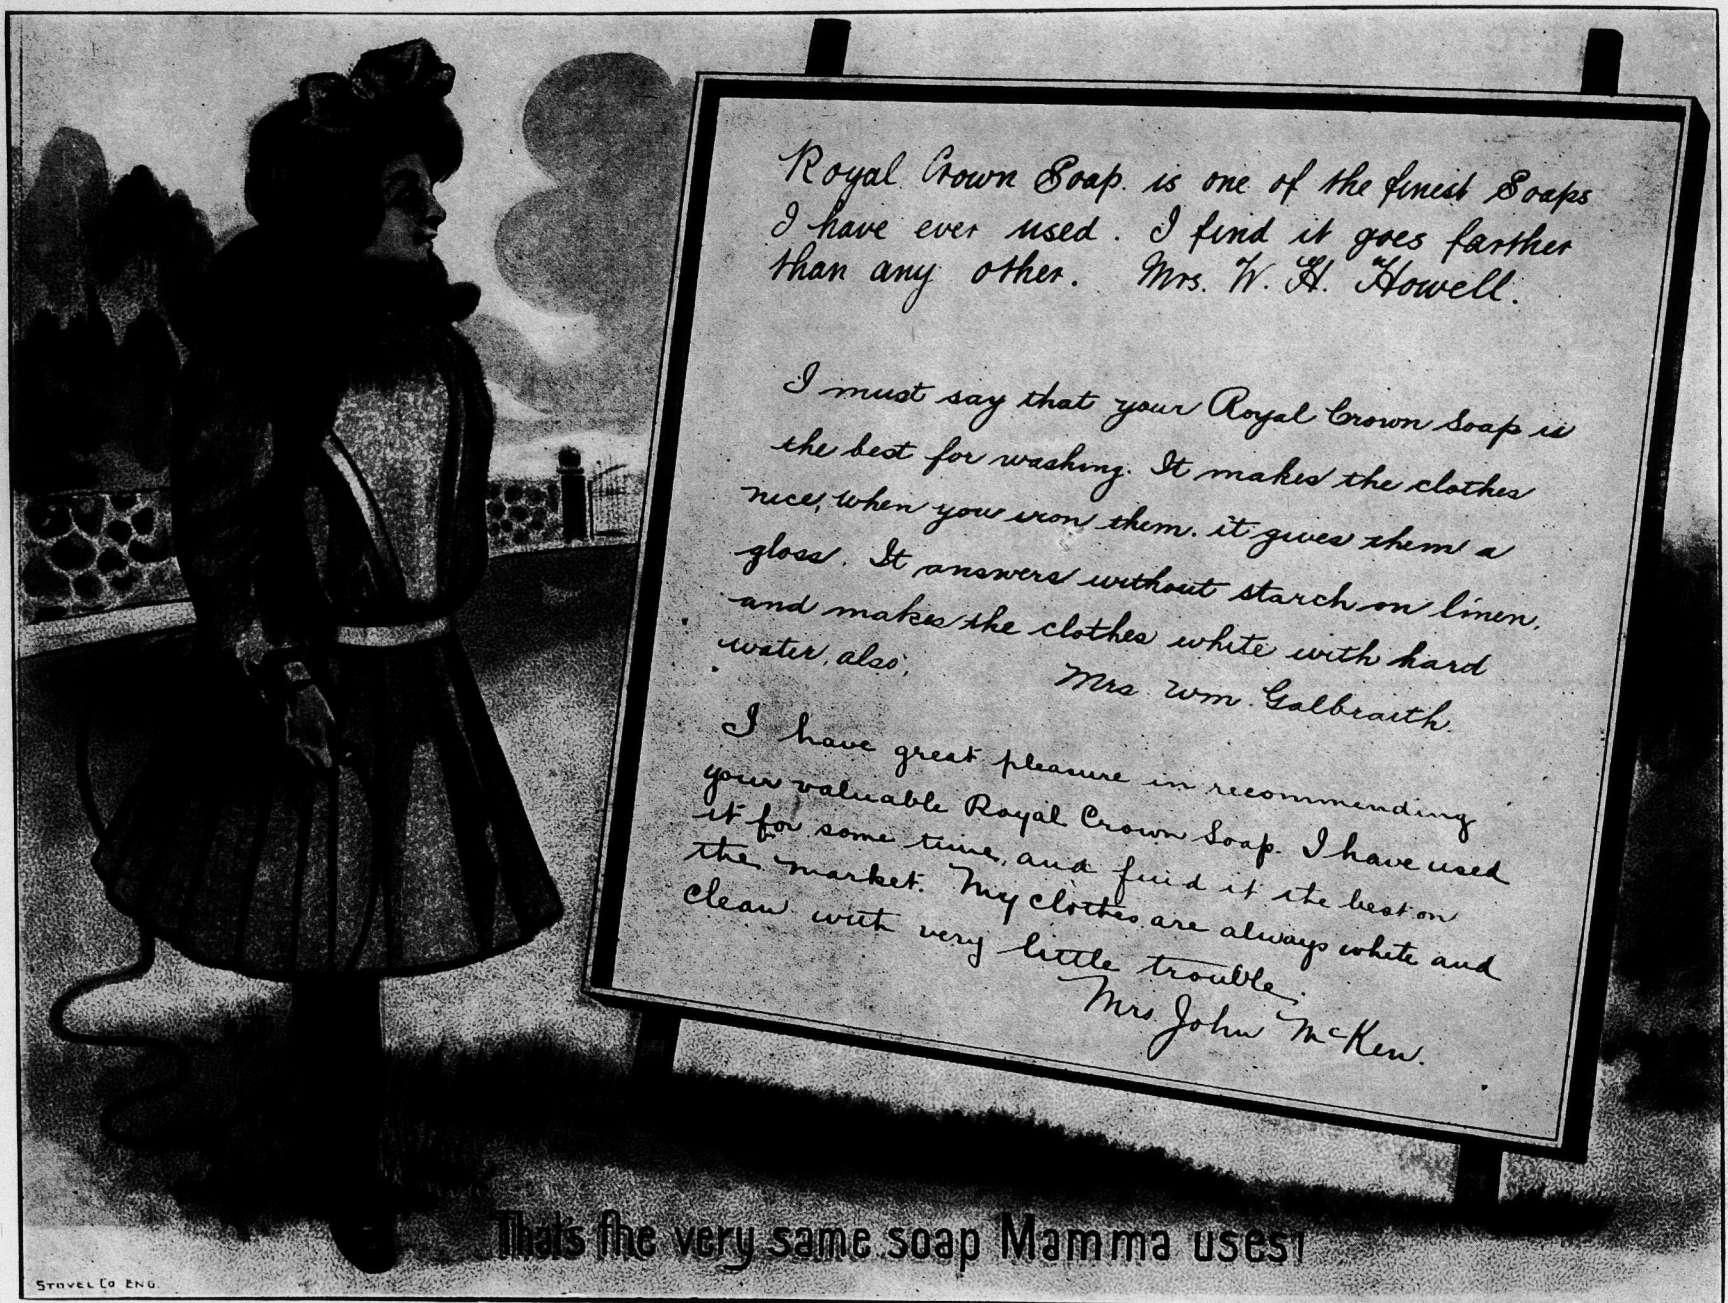 Royal Crown Soap. is one of the finest Soaps
I have ever used. I find it goes farther
than any other. Mrs. W. H. Howell.
I must say that your Royal Crown Soap is
the best for washing. It makes the clothes
nice, when you iron them. it gives them a
gloss. It answers without starch on linen.
and makes the clothes white with hard
water, also,
Mrs Wm. Galbraith.
I have great pleasure in recommending
your valuable Royal Crown Soap. I have used
it for some time, and find it the best on
the market. My clothes are always white and
clean with very little trouble.
Mrs John McKen.
That's the very same soap Mamma uses!
STOVEL CO ENG.